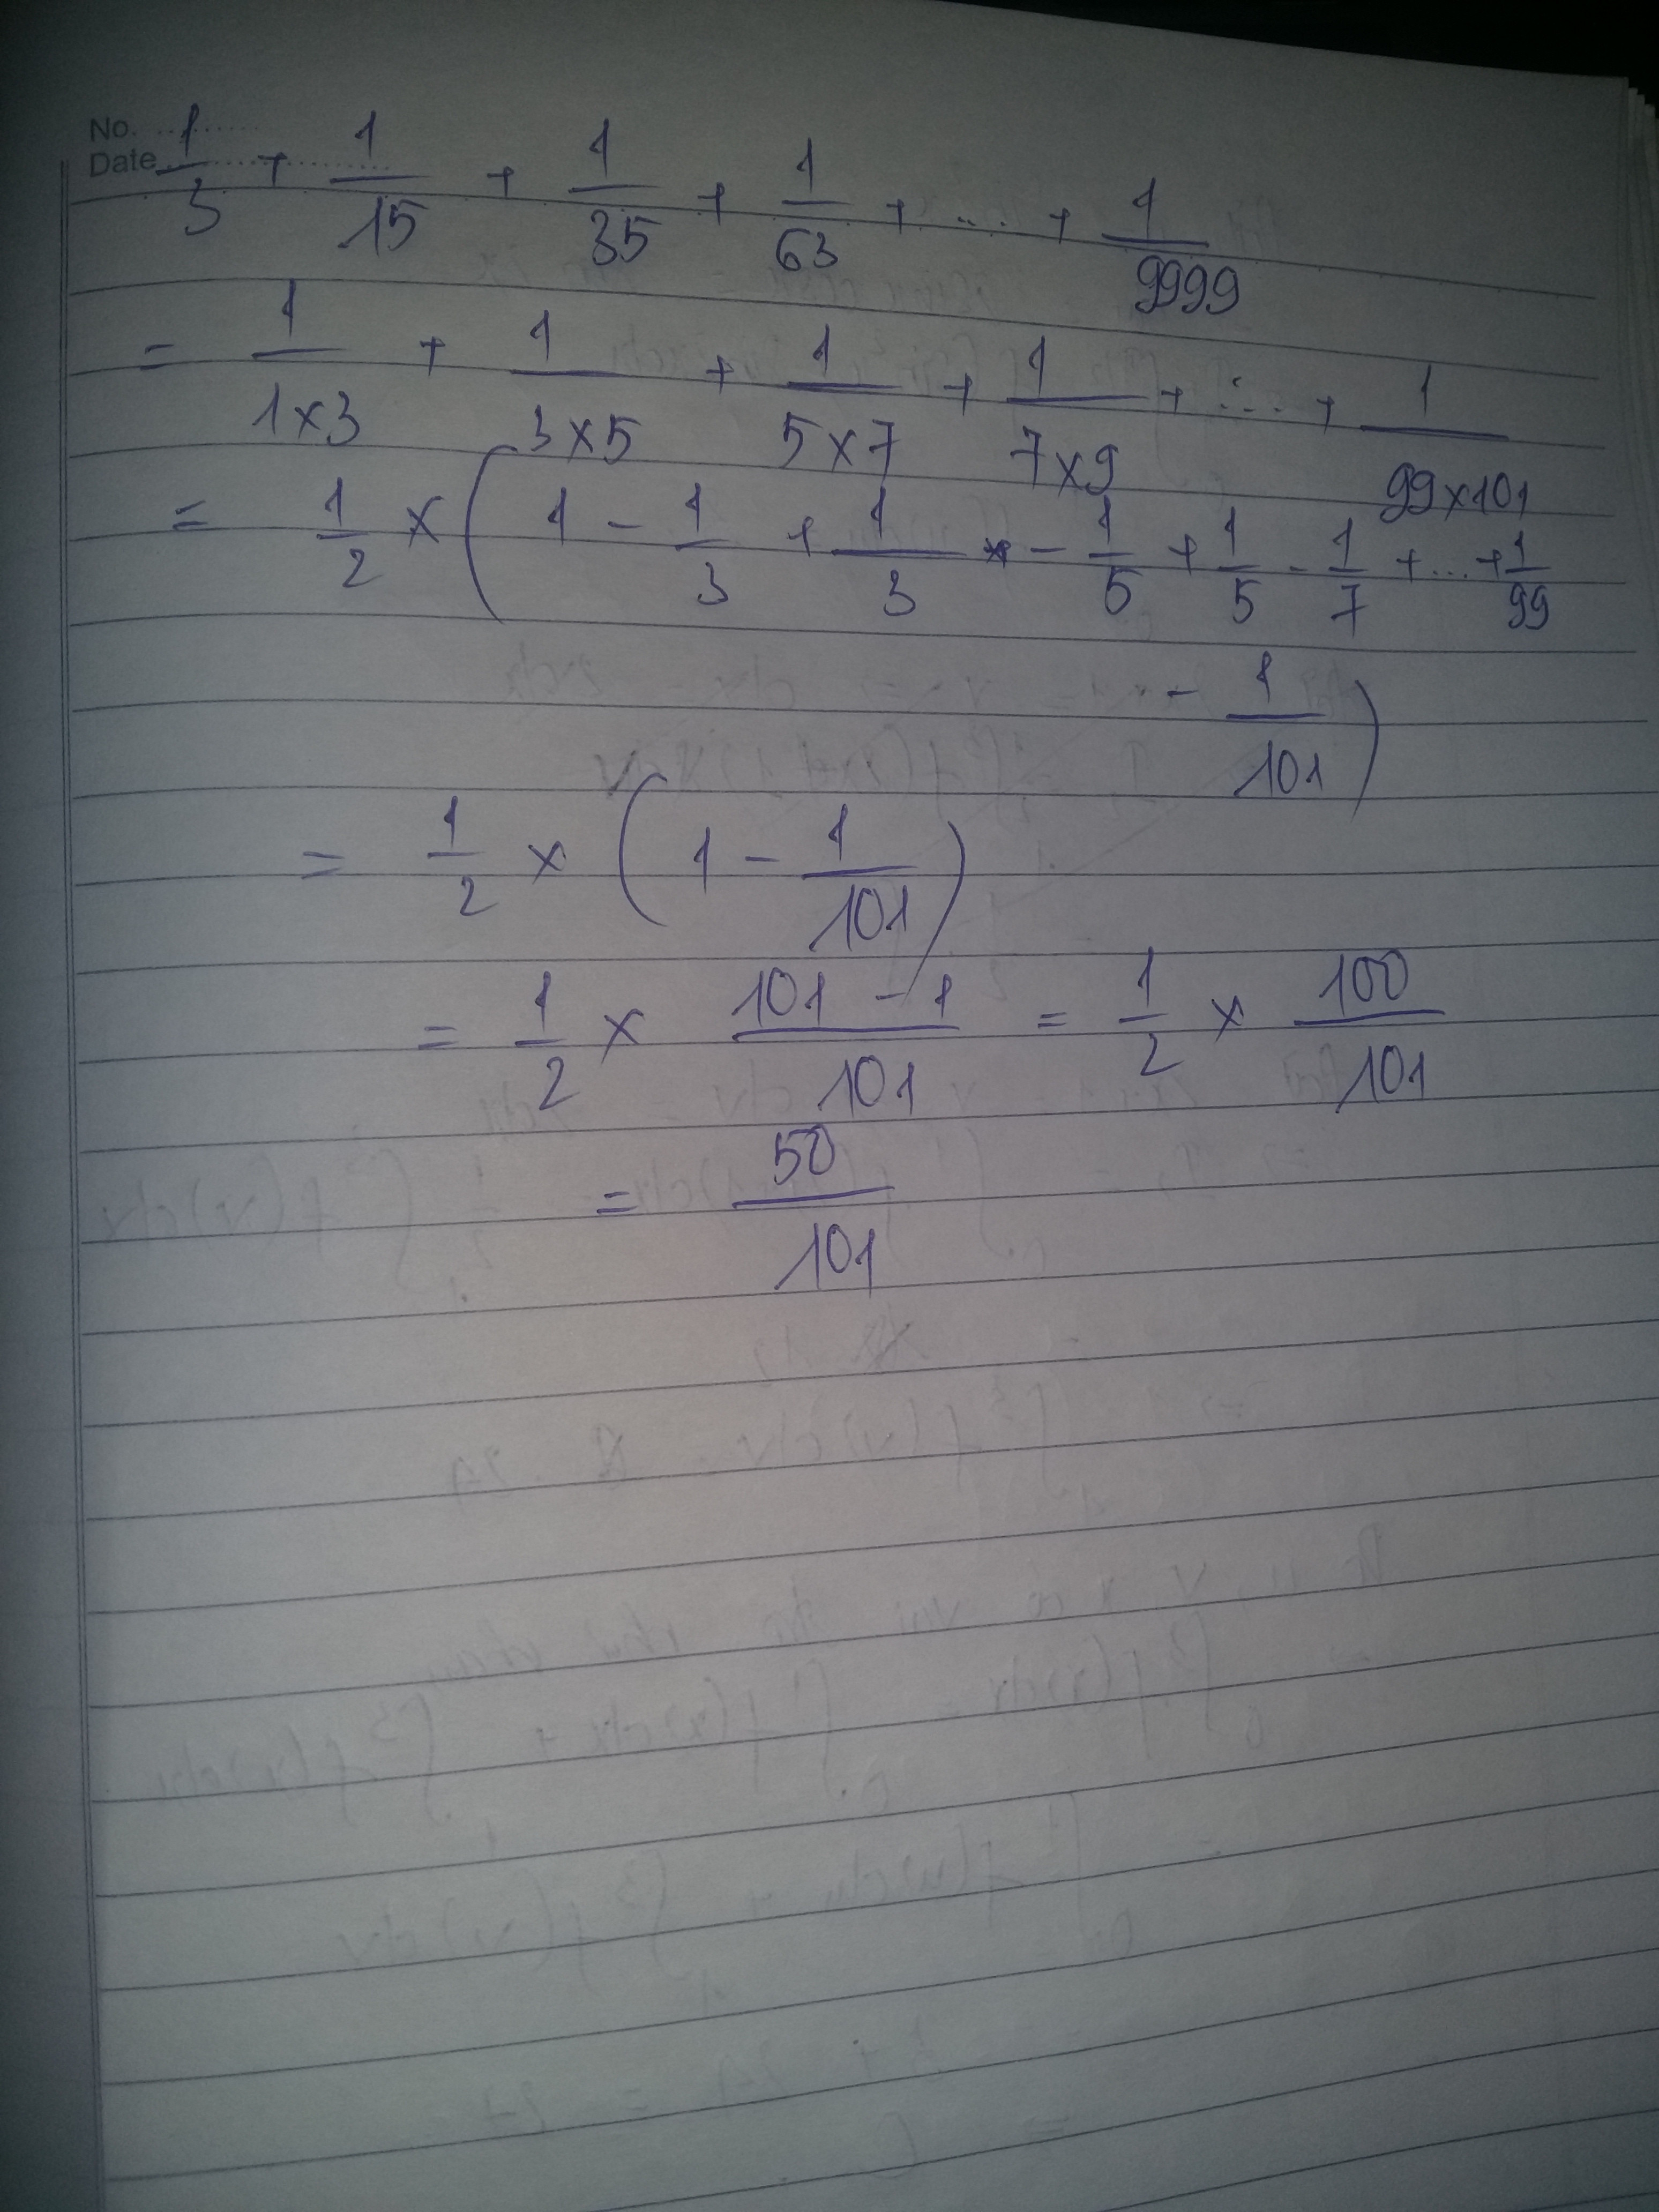 No. ............
Date ............
1/3 + 1/15 + 1/35 + 1/63 + ... + 1/9999
= 1/(1×3) + 1/(3×5) + 1/(5×7) + 1/(7×9) + ... + 1/(99×101)
= 1/2 × (1 - 1/3 + 1/3 - 1/5 + 1/5 - 1/7 + ... + 1/99
- 1/101)
= 1/2 × (1 - 1/101)
= 1/2 × (101 - 1)/101 = 1/2 × 100/101
= 50/101